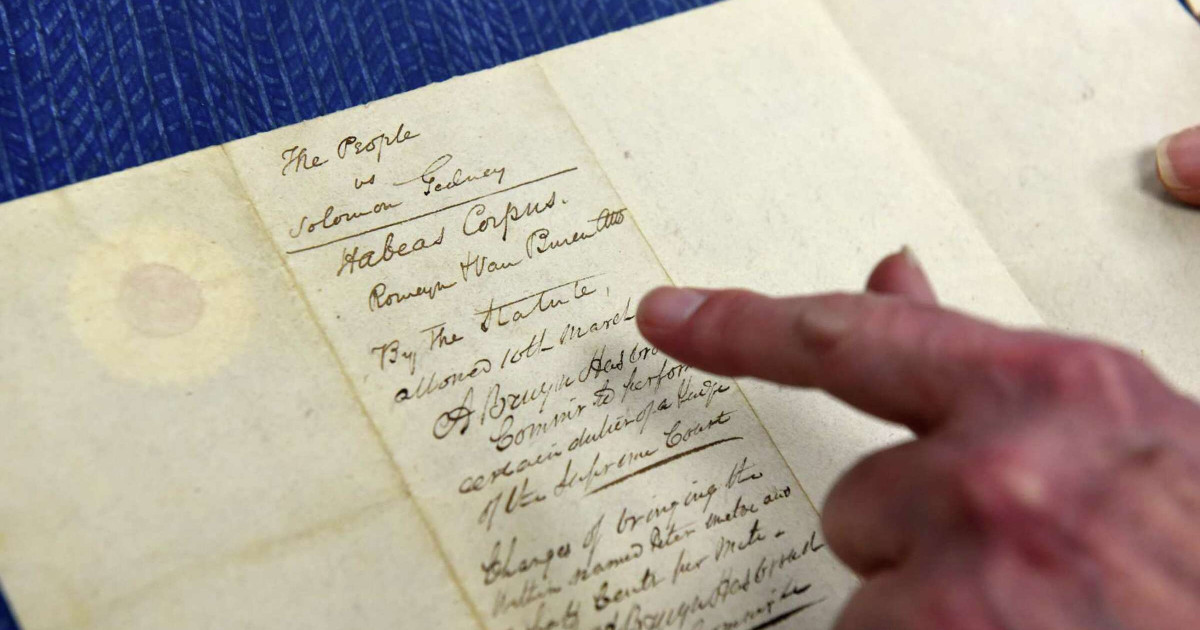 The People
vs
Solomon Gedney
Habeas Corpus.
Romeyn & Van Buren Attos
By the Statute,
allowed 10th March
A Bruyn Hasbro
Commir to perform
certain duties of a Judge
of the Supreme Court
Charges of bringing the
within named Peter twelve and
half Cents per Mile -
A Bruyn Hasbrouck
Commir